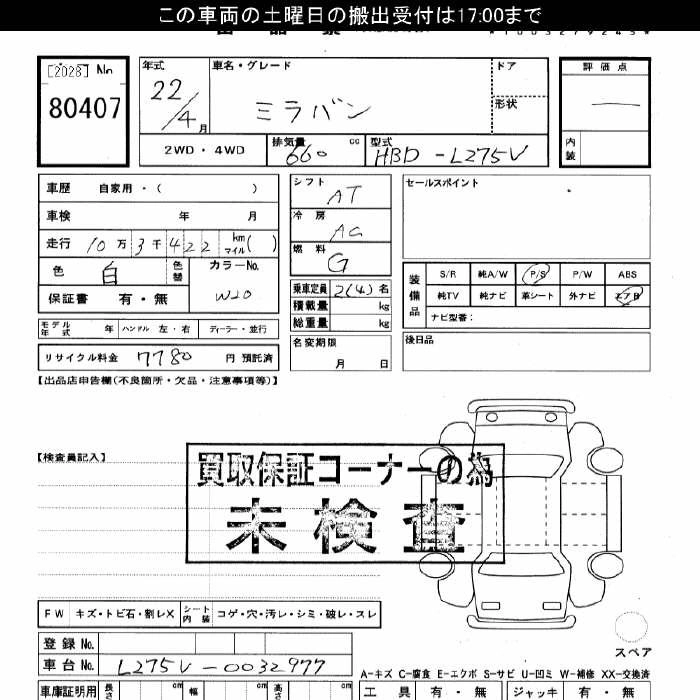 この車両の土曜日の搬出受付は17:00まで
[2028] No
80407
年式 車名・グレード ドア 評価点
22/4月 ミラバン 形状 —
2WD・4WD 排気量 660 cc 型式 HBD-L275V 内装
車歴 自家用・( ) シフト AT セールスポイント
車検 年 月 冷房 AC
走行 10万3千422 km マイル( ) 燃料 G
色 白 色替 カラーNo. W20
装備品 S/R 純A/W P/S P/W ABS
保証書 有・無 乗車定員 2(4)名 純TV 純ナビ 革シート 外ナビ エアB
積載量 kg ナビ型番:
モデル年式 年 ハンドル 左・右 ディーラー・並行 総重量 kg
リサイクル料金 7780 円 預託済 名変期限 月 日 後日品
【出品店申告欄(不良箇所・欠品・注意事項等)】
【検査員記入】
買取保証コーナーの為
未検査
FW キズ・トビ石・割レX シート内装 コゲ・穴・汚レ・シミ・破レ・スレ
登録No.
スペア
車台No. L275V-0032977
A-キズ C-腐食 E-エクボ S-サビ U-凹ミ W-補修 XX-交換済
車庫証明用 長さ cm 幅 cm 高さ cm 工具 有・無 ジャッキ 有・無